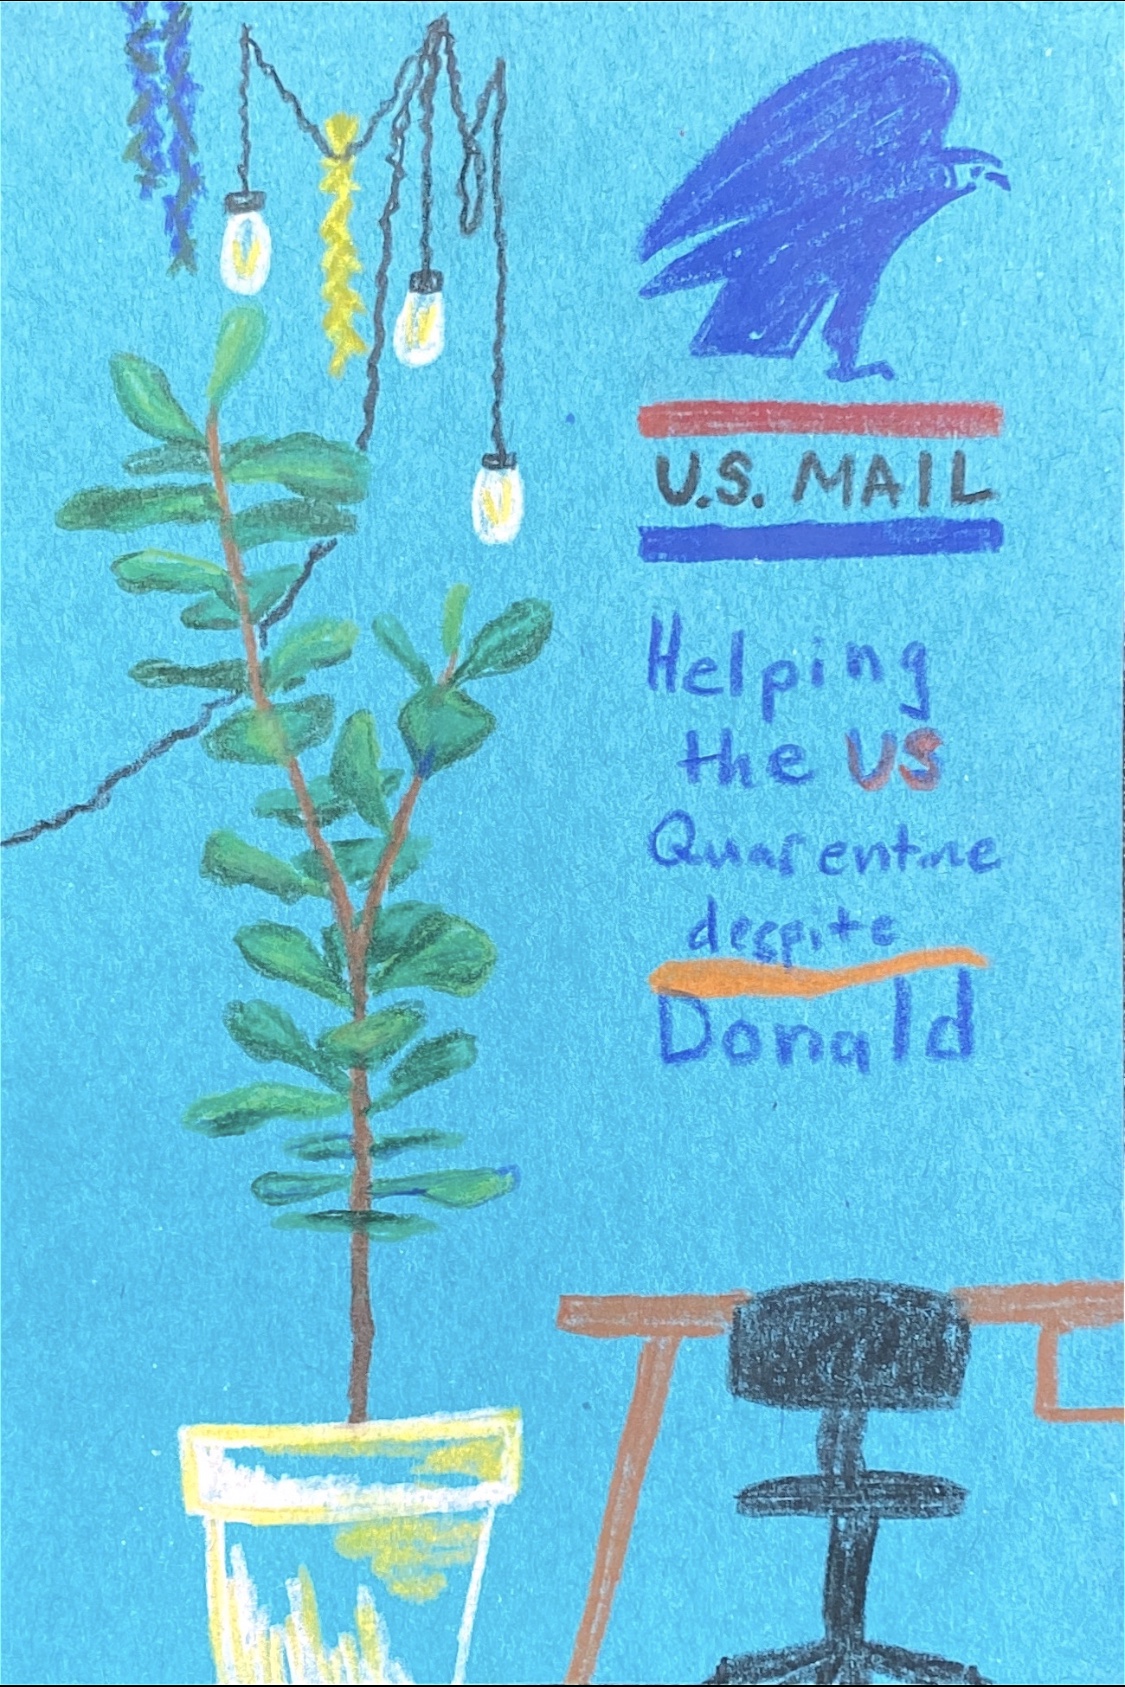 U.S. MAIL
Helping
the US
Quarentine
despite
Donald